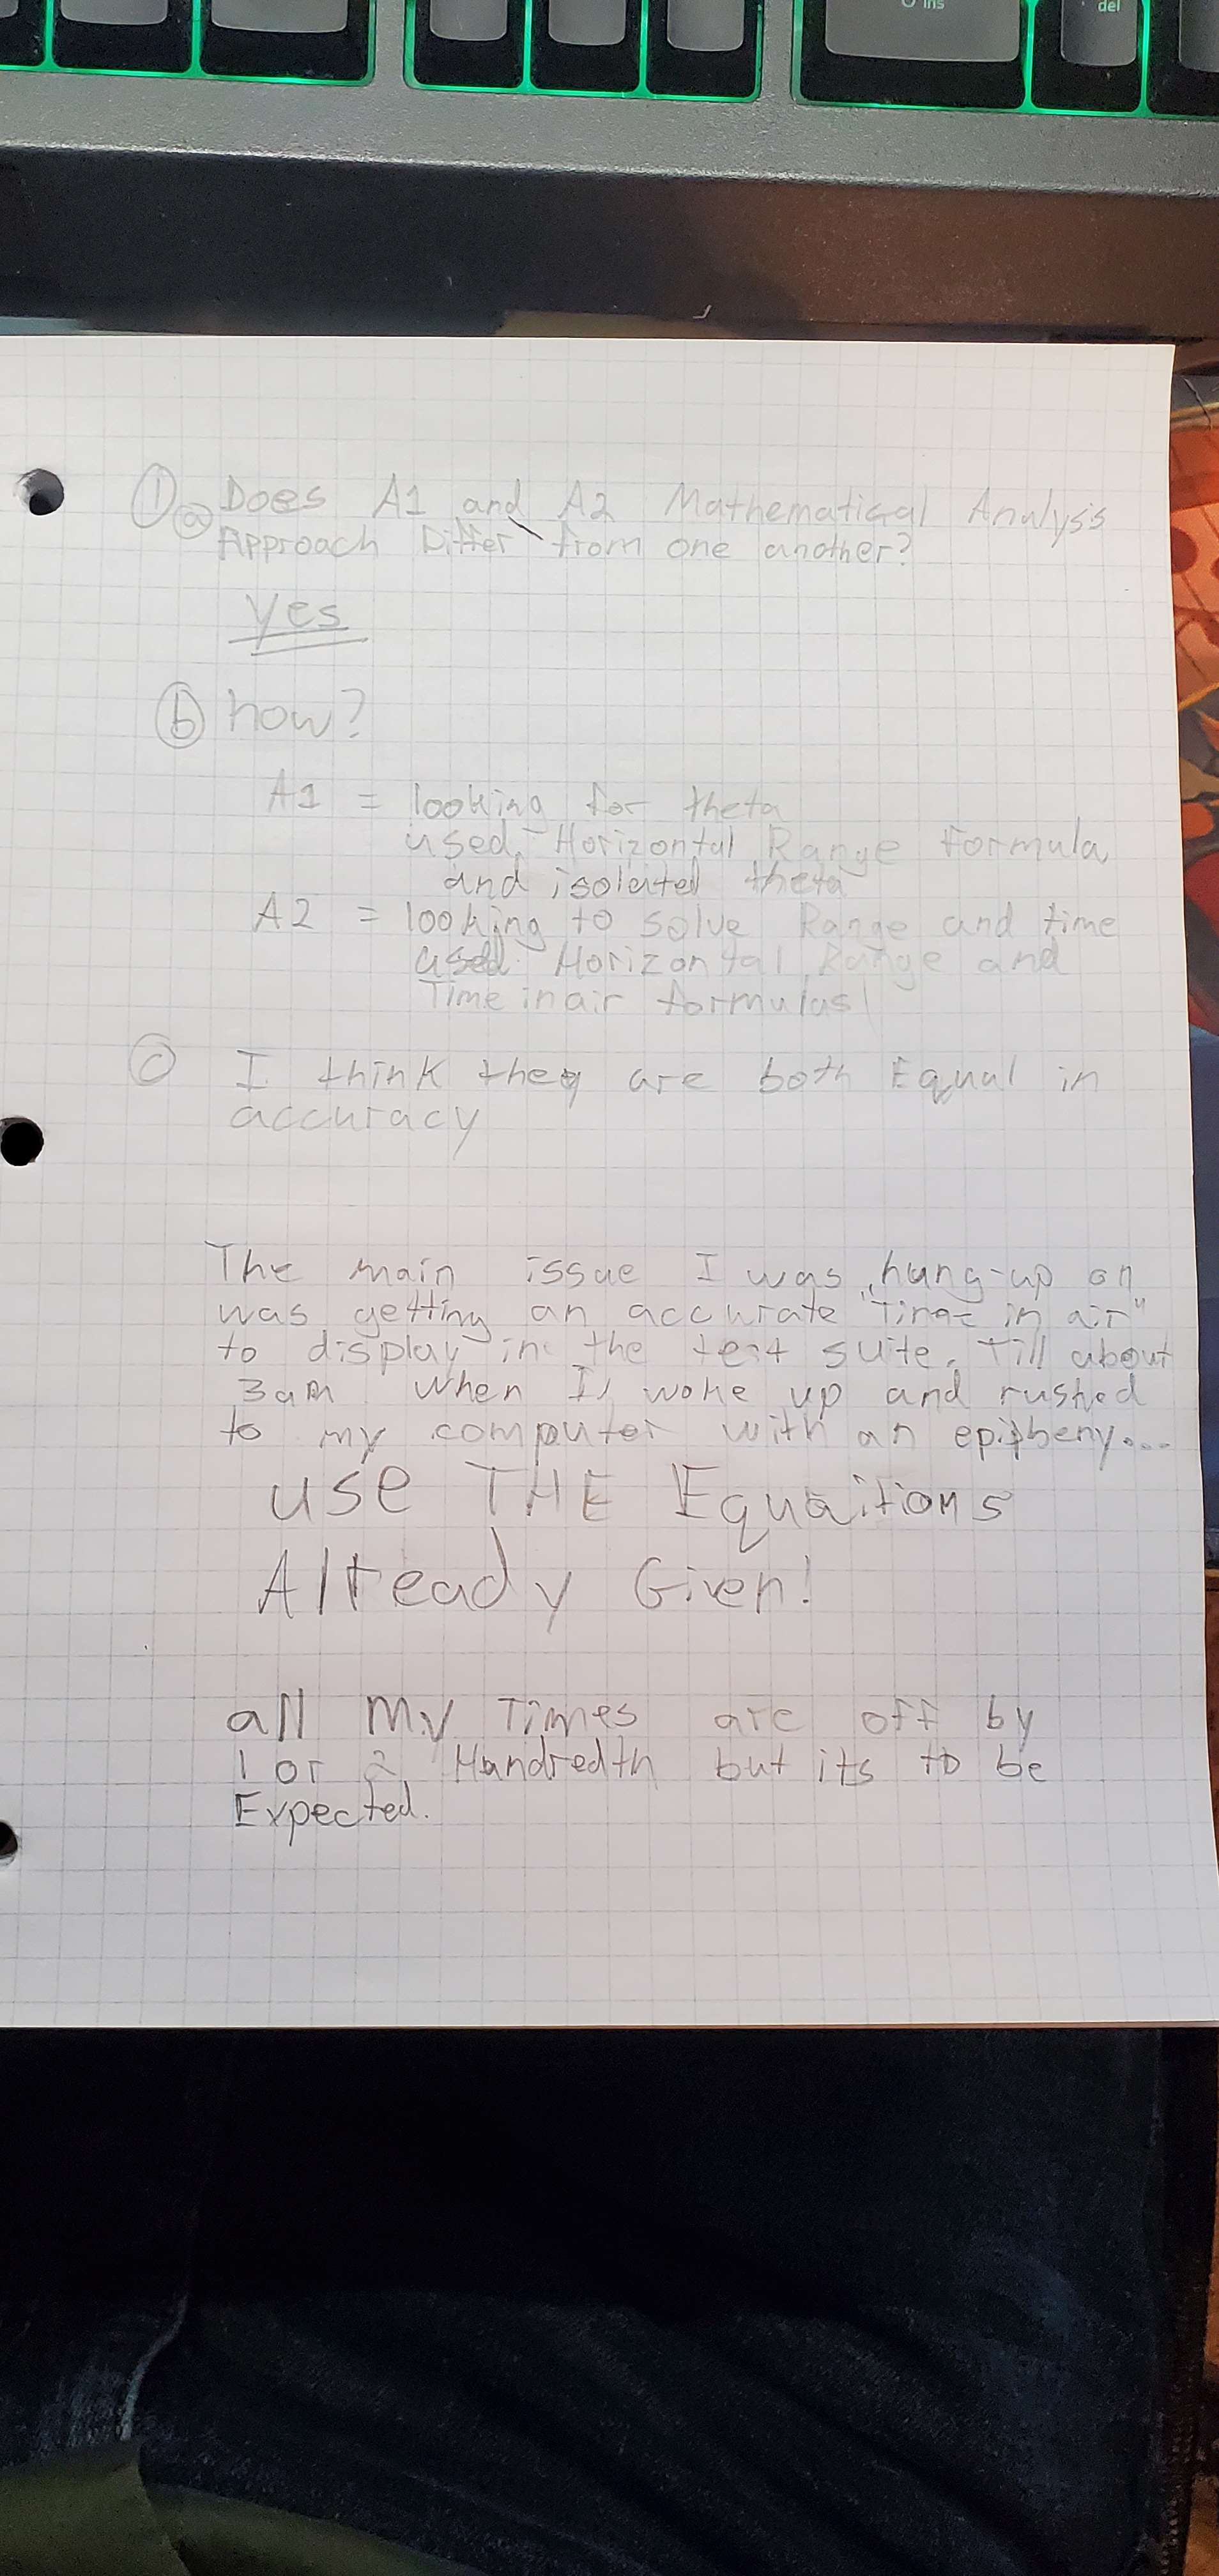 ins
del
① ⓐ Does A1 and A2 Mathematical Analysis
Approach Differ from one another?
yes
ⓑ how?
A1 = looking for theta
used. Horizontal Range formula
and isolated theta
A2 = looking to solve Range and time
used. Horizontal Range and
Time in air formulas
ⓒ I think they are both Equal in
accuracy
The main issue I was hung-up on
was getting an accurate "Time in air"
to display in the test suite. Till about
3am when I woke up and rushed
to my computer with an epipheny....
use THE Equaitions
Already Given!
all My Times are off by
1 or 2 Hundredth but its to be
Expected.